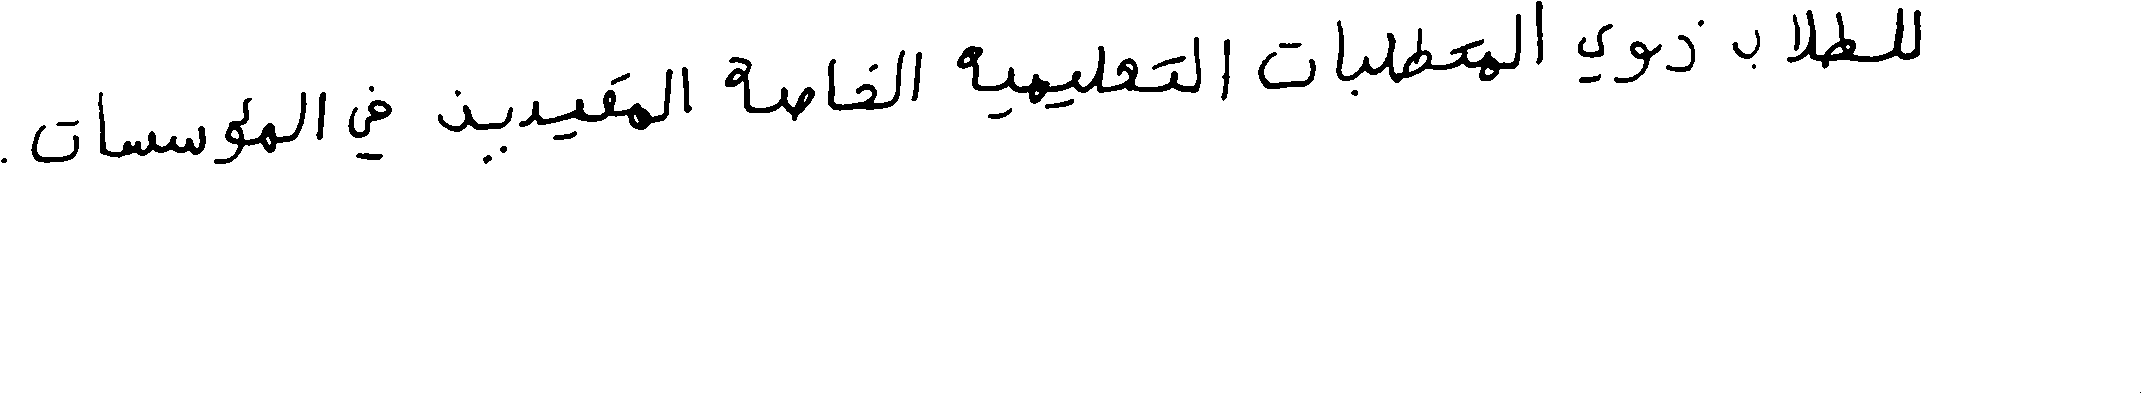 للطلاب ذوي المتطلبات التعليمية الخاصة المقيدين في المؤسسات .